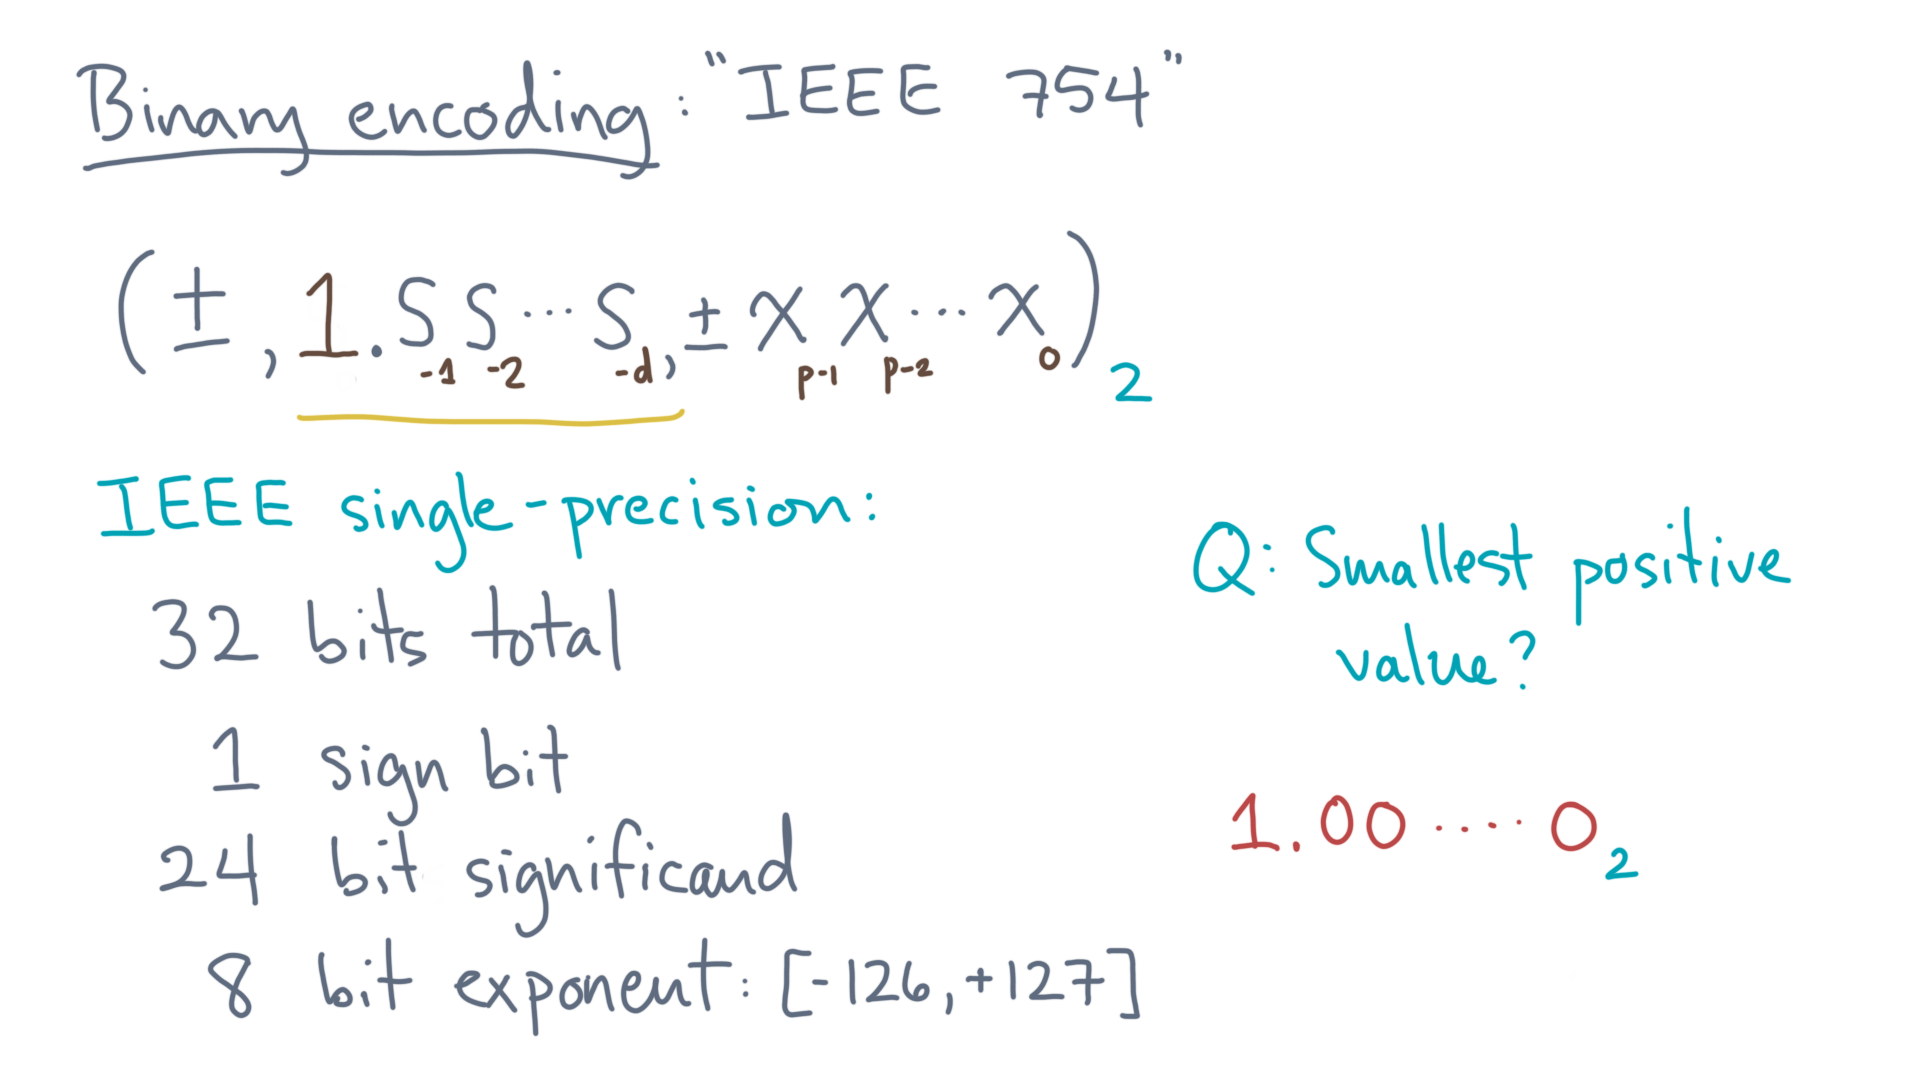 Binary encoding: "IEEE 754"
(±, 1.S₋₁S₋₂···S₋d, ±xₚ₋₁xₚ₋₂···x₀)₂
IEEE single-precision:
32 bits total
1 sign bit
24 bit significand
8 bit exponent: [-126, +127]
Q: Smallest positive
value?
1.00····0₂